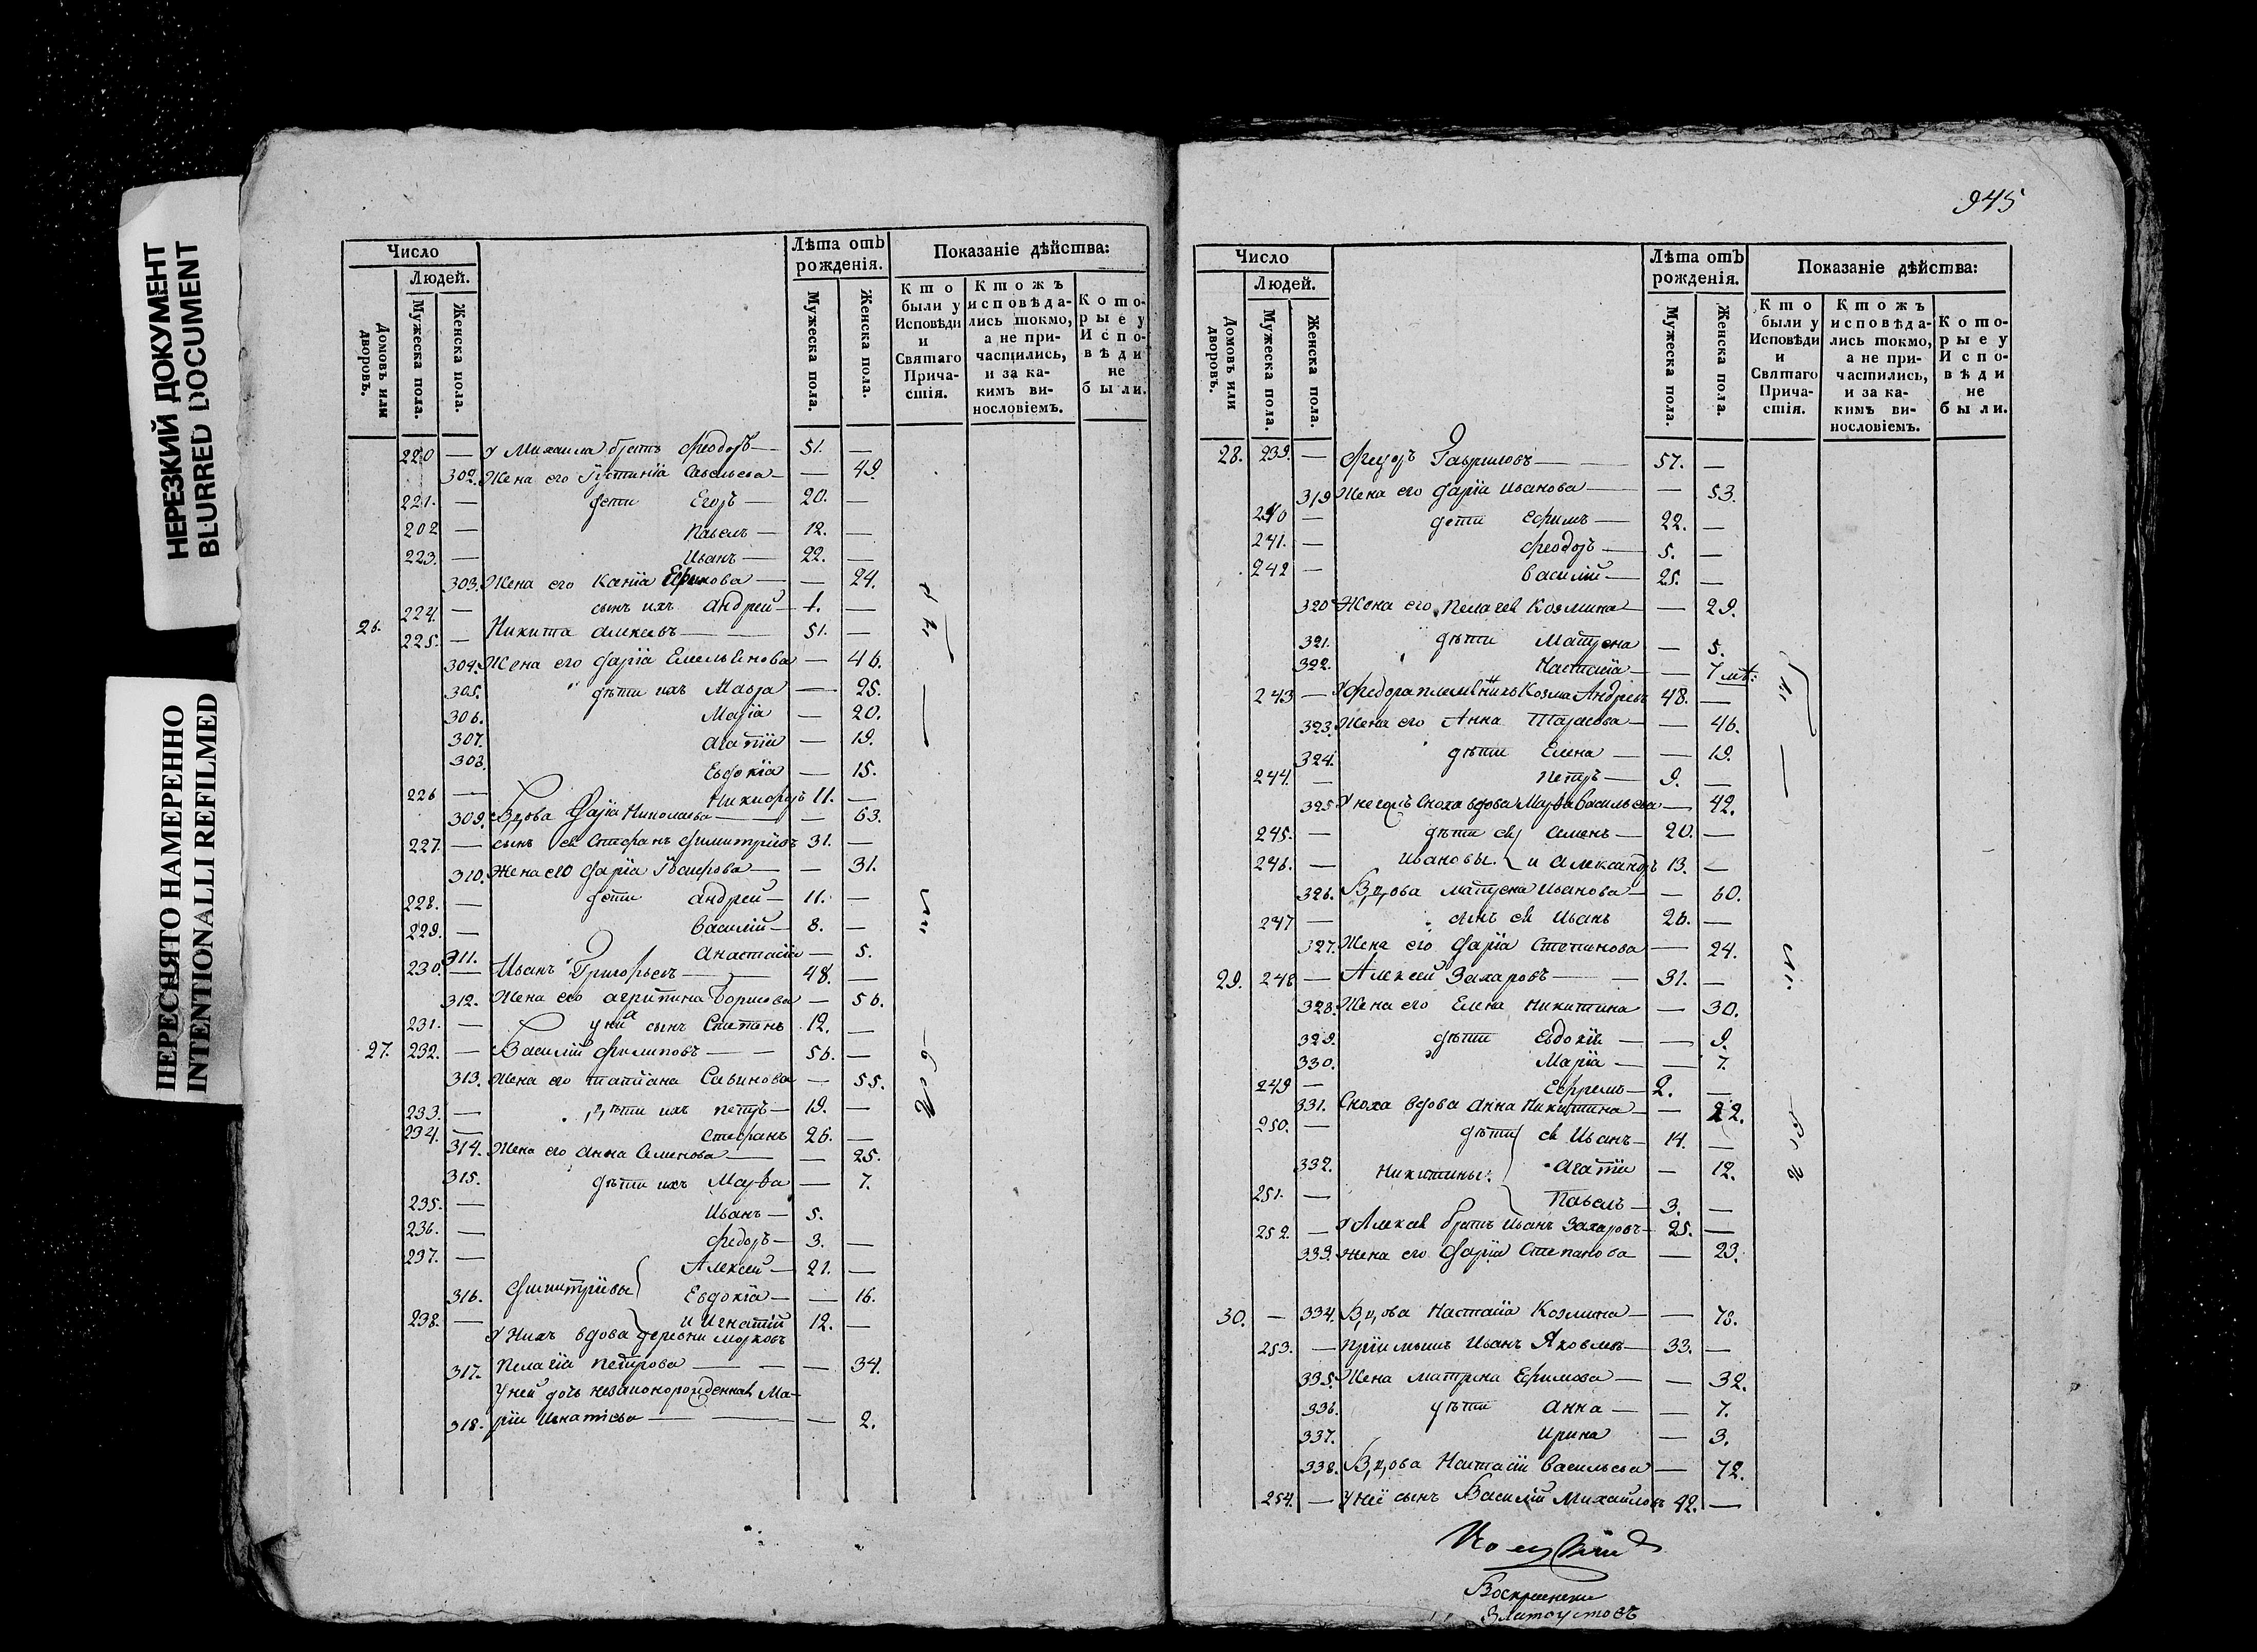 НЕРЕЗКИЙ ДОКУМЕНТ
BLURRED DOCUMENT
ПЕРЕСНЯТО НАМЕРЕННО
INTENTIONALLI REFILMED
Число
Лѣта отъ рожденія.
Показаніе дѣйства:
Людей.
Домовъ или дворовъ.
Мужеска пола.
Женска пола.
Мужеска пола.
Женска пола.
Кто были у Исповѣди и Святаго Причастія.
Ктожъ исповѣдались токмо, а не причастились, и за какимъ винословіемъ.
Которые у Исповѣди не были.
220 — У Михаила братъ Феодоръ — 51. —
302. Жена его Іустинія Савельева — — 49.
221. — дети Егоръ — 20. —
202 — Павелъ — 12. —
223. — Иванъ — 22. —
303. Жена его Ксенія Ефимова — — 24.
224. — сынъ ихъ Андрей — 1. —
26. 225. — Никита Алексевъ — 51. —
304. Жена его Дарія Емельянова — 46.
305. дѣти ихъ Мавра — 25.
306. Марія — 20.
307. Агапія — 19.
308. Евдокія — 15.
226 — Никифоръ 11. —
309. Вдова Дарія Николаева — — 63.
227. — сынъ ея Стефанъ Димитріевъ 31. —
310. Жена его Дарія Іосифова — — 31.
228. — дети Андрей — 11. —
229. — Василій — 8. —
311. Анастасія — 5.
230. — Иванъ Григорьевъ — 48. —
312. Жена его Агрипина Борисова — 56.
231. — у нихъ сынъ Степанъ 12. —
27. 232. — Василій Филиповъ — — 56. —
313. Жена его Татіана Савинова — 55.
233. — дѣти ихъ Петръ — 19. —
234. — Стефанъ 26. —
314. Жена его Анна Семенова — — 25.
315. дѣти ихъ Марѳа — 7.
235. — Иванъ — 5.
236. — Федоръ — 3. —
237. — Алексей — 21. —
316. Димитріевы Евдокія — — 16.
238. — и Игнатій 12. —
У нихъ вдова деревни Морковъ
317. Пелагія Петрова — — — 34.
У ней дочь незаконорожденная Ма-
318. рія Игнатіева — — — 2.
945
Число
Лѣта отъ рожденія.
Показаніе дѣйства:
Людей.
Домовъ или дворовъ.
Мужеска пола.
Женска пола.
Мужеска пола.
Женска пола.
Кто были у Исповѣди и Святаго Причастія.
Ктожъ исповѣдались токмо, а не причастились, и за какимъ винословіемъ.
Которые у Исповѣди не были.
28. 239. — Федоръ Гавриловъ — — 57. —
319 Жена его Дарія Иванова — — 53.
240 — дети Ефимъ — 22. —
241. — Феодоръ — 5. —
242 — Василій — 25. —
320 Жена его Пелагея Козмина — — 29.
321. дѣти Матрена — 5.
322. Настасія — — 7 мѣ:
243 — У Федора племянникъ Козма Андревъ 48. —
323. Жена его Анна Тарасова — — 46.
324. дѣти Елена — — 19.
244. — Петръ — 9. —
325 У него жъ сноха вдова Марѳа Васильева — 42.
245. — дѣти ея Семенъ — 20. —
246. — Ивановы. и Александръ 13. —
326. Вдова Матрена Иванова — — 60.
247 — сынъ ея Иванъ 26. —
327. Жена его Дарія Степанова — 24.
29. 248 — Алексей Захаровъ — — 31. —
328. Жена его Елена Никитина — 30.
329. дѣти Евдокія — — 9.
330. Марія — — 7.
249 — Ефремъ — 2. —
331. Сноха вдова Анна Никитина — — 22.
250. — дѣти ея Иванъ — 14. —
332. Никитины: Агапія — 12.
251. — Павелъ — 3. —
252. — У Алексея братъ Иванъ Захаровъ — 25. —
333. Жена его Дарія Степанова — 23.
30. — 334. Вдова Настасія Козмина — — 78.
253. — Пріимышъ Иванъ Яковлевъ — 33. —
335. Жена Матрена Ефимова — — 32.
336. дѣти Анна — — 7.
337. Ирина — 3.
338. Вдова Настасія Васильева — 72.
254. — У неї сынъ Василій Михайловъ 42. —
Воскресенски
Златоустовъ